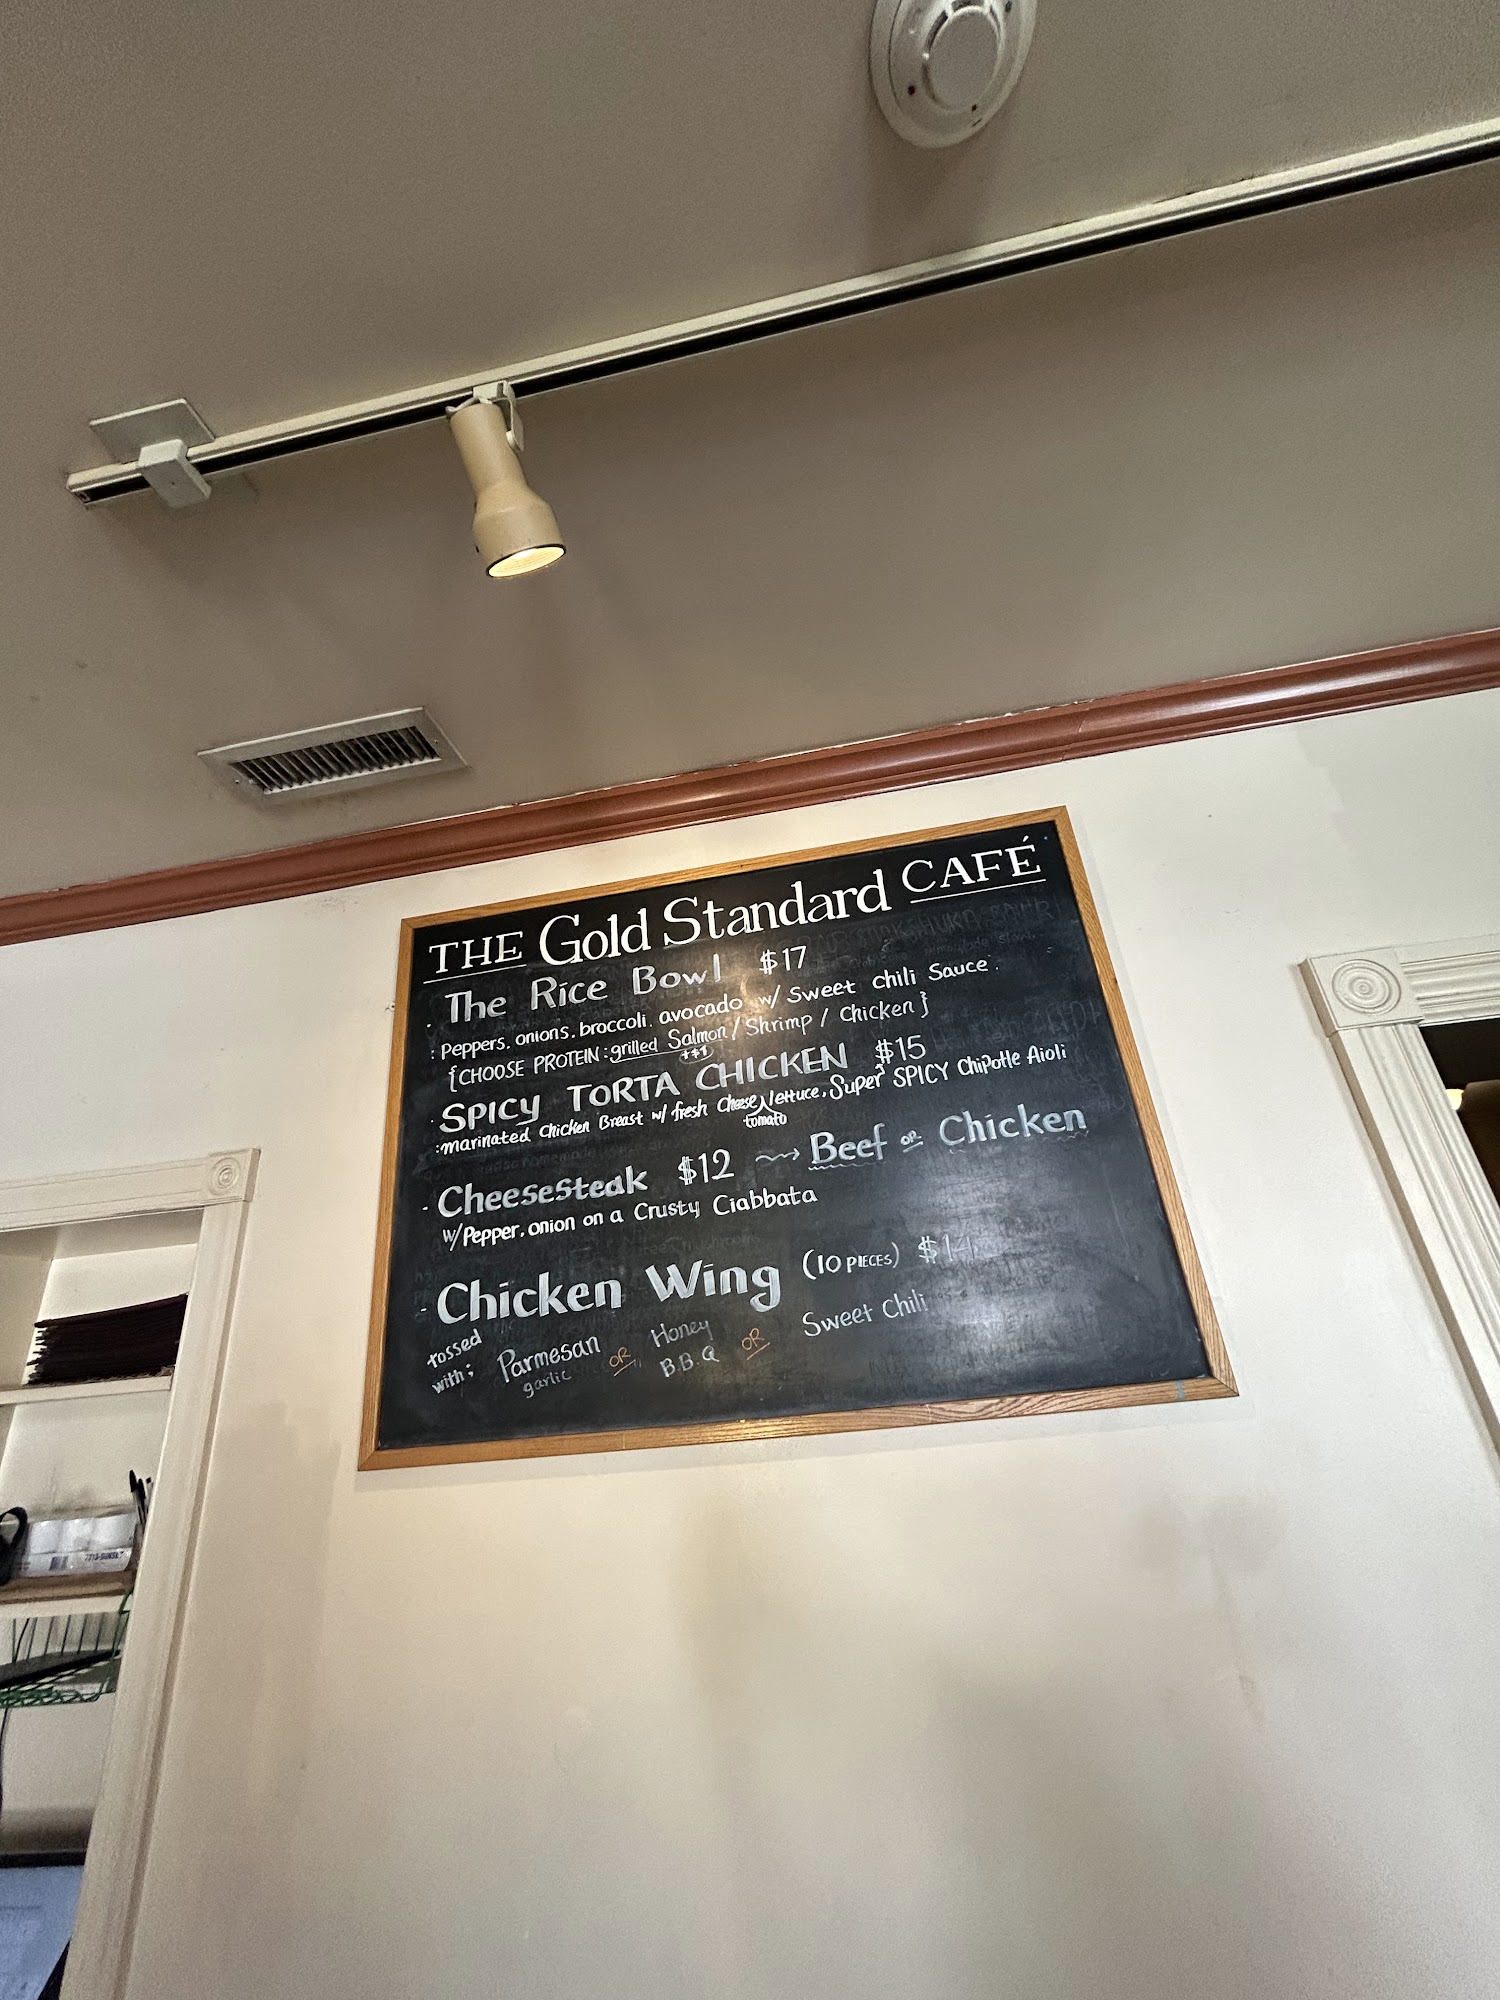 THE Gold Standard CAFÉ
· The Rice Bowl $17
: Peppers, onions, broccoli, avocado w/ Sweet chili Sauce.
{CHOOSE PROTEIN: grilled Salmon / Shrimp / Chicken}
· SPICY TORTA CHICKEN $15
: marinated Chicken Breast w/ fresh cheese, lettuce, Super SPICY Chipotle Aioli
tomato
- Cheesesteak $12 → Beef OR Chicken
w/ Pepper, onion on a Crusty Ciabbata
- Chicken Wing (10 PIECES) $14
tossed with; Parmesan garlic OR Honey B.B.Q OR Sweet Chili